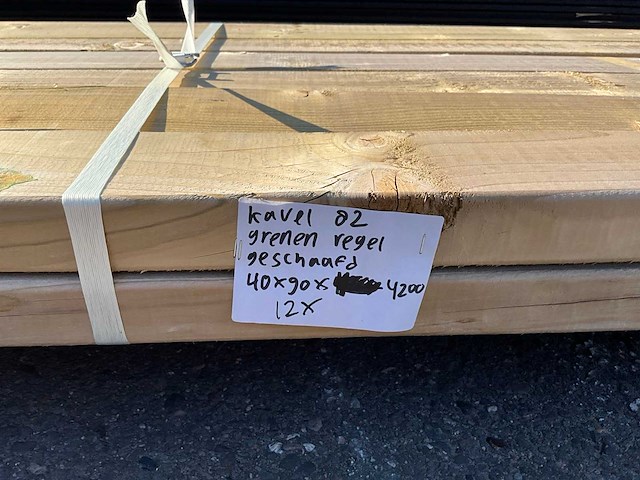 kavel 82
grenen regel
geschaafd
40x90x 4200
12x